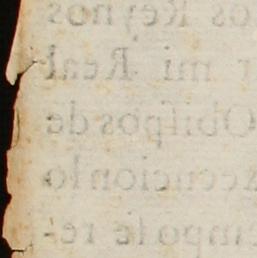 os Reynos
r mi Real
Obiſpos de
ecucion lo
empo ſe re-